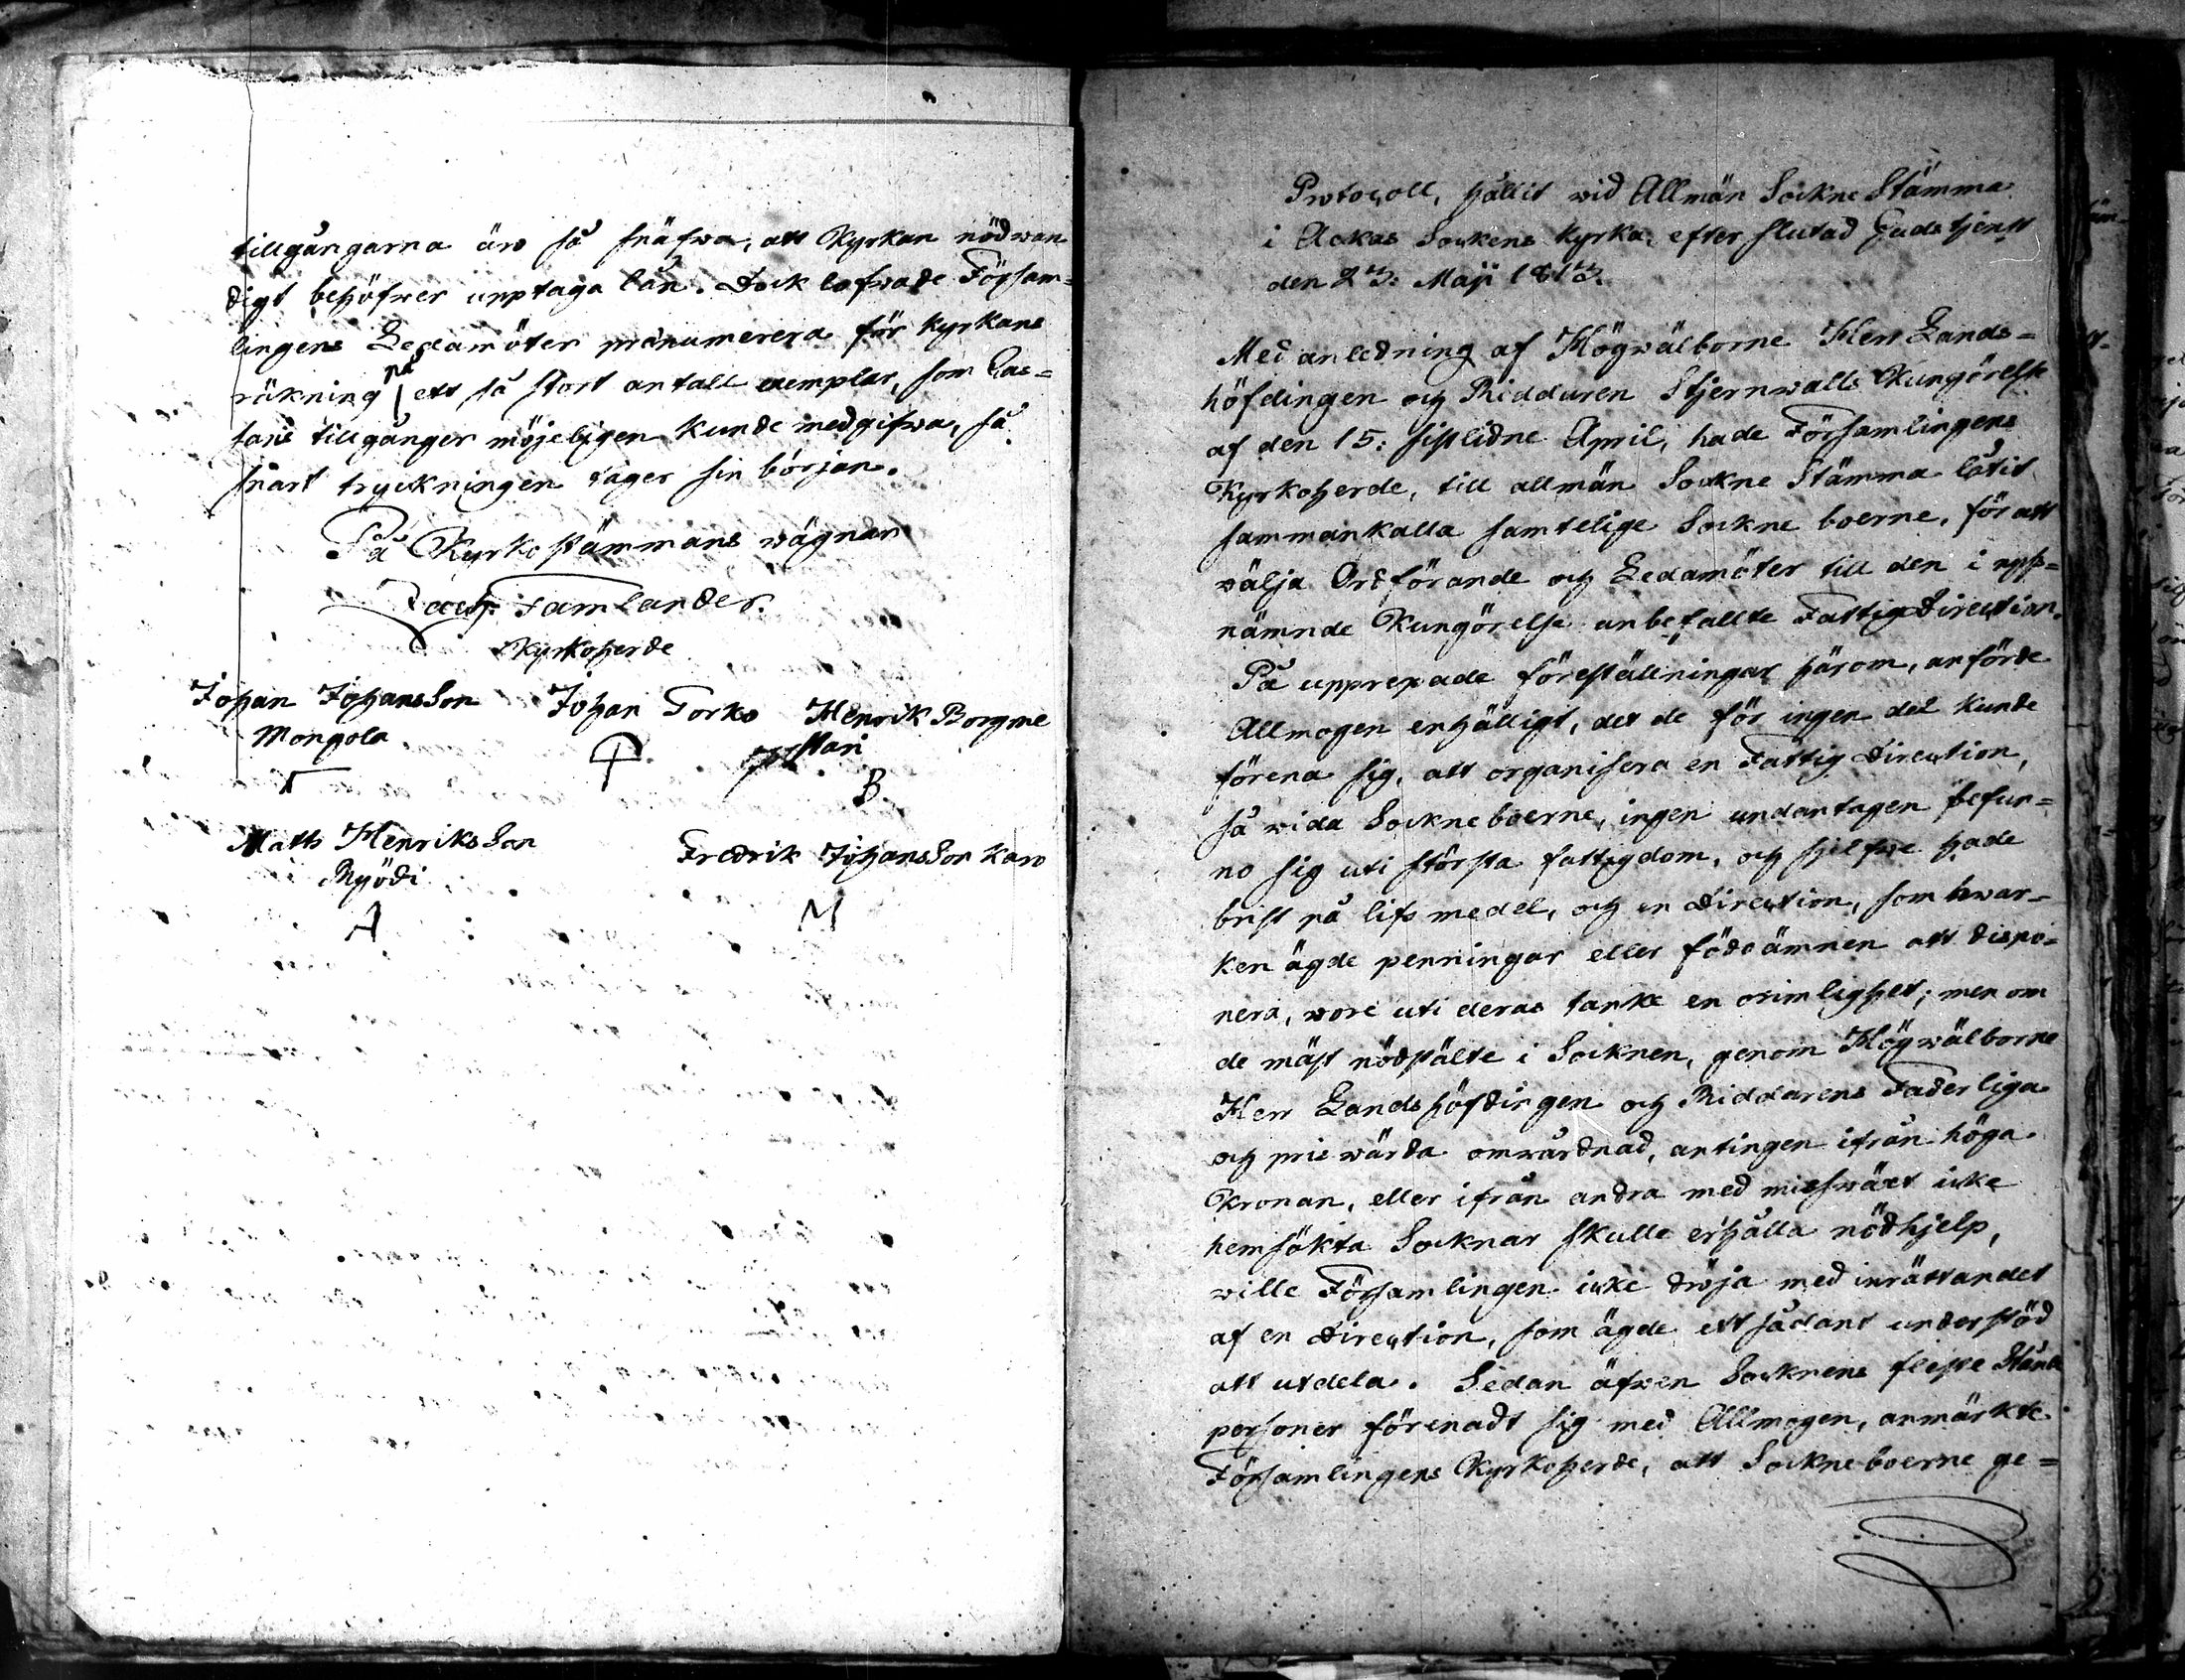 tillgångarna äro så snäfwa, att Kyrkan nödwan
digt behöfwer upptaga lån. Dock lofwade Församlingens
lingens Ledamöter prænumerera för Kyrkans
räkning på ett så stort antall exemplar, som Cas=
sans tillgånger möjeligen kunde medgifwa, så
snart tryckningen tager sin början.
På Kyrkostämmans wägnar
Zach: Famlander.
Kyrkoherde
Johan JohansSon Johan Torko Henrik Borgme
Mongola stari
B
Matts HenriksSon Fredrik JohansSon Karo
Ryödi
A M
Protocoll, hållit wid Allmän Sockne Stämma
i Ackas Sockens Kyrka, efter slutad Gudstjenst
den 23: Maji 1813.
Med anledning af Högwälborne Herr Lands=
höfdingen och Riddaren Stjernwalls Kungörelse
af den 15: sistlidne April, hade Församlingens
Kyrkoherde, till allmän Sockne Stämma låtit
sammankalla samtelige Sockne boerne, för att
wälja Ordförande och Ledamöter till den i upp=
nämnde Kungörelse anbefallte Fattig Direction.
På upprepade föreställningar härom, anförde
Allmogen enhälligt, det de för ingen del kunde
förena sig, att organisera en Fattig Direction,
så wida Sockneboerne, ingen undantagen befun=
no sig uti största fattigdom, och sjelfwe hade
brist på lifsmedel, och en Direction, som hwar=
ken ägde penningar eller födoämnen att dispo=
nera, wore uti deras tanke en orimlighet; men om
de mäst nödstälte i Socknen, genom Högwälborne
Herr Landshöfdingen och Riddarens Faderliga
och priswärda omwårdnad, antingen ifrån höga
Kronan, eller ifrån andra med misswäxt icke
hemsökta Socknar skulle erhålla nödhjelp,
wille Församlingen icke dröja med inrättandet
af en Direction, som ägde ett sådant understöd
att utdela. Sedan äfwen Socknens fleste Stånds
personer förenadt sig med Allmogen, anmärkte
Församlingens Kyrkoherde, att Sockneboerne ge=